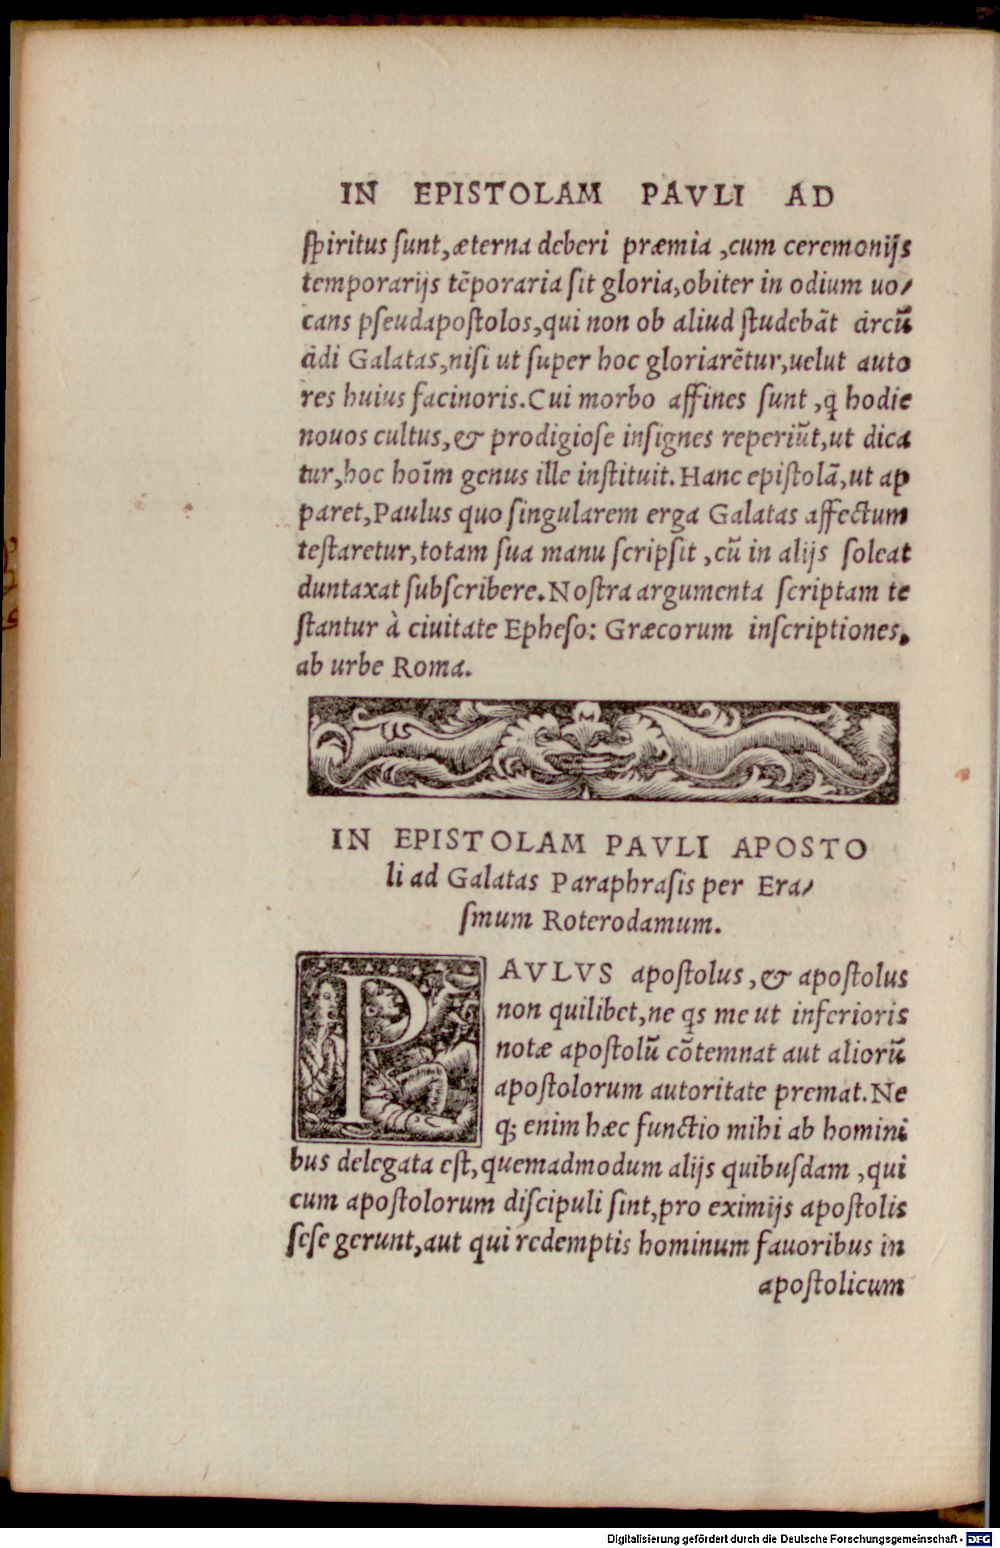 IN EPISTOLAM PAVLI AD
ſpiritus ſunt,æterna deberi præmia ,cum ceremonijs
temporarijs tẽporaria ſit gloria,obiter in odium uo⸗
cans pſeudapoſtolos,qui non ob aliud ſtudebãt circũ
cidi Galatas,niſi ut ſuper hoc gloriarẽtur,uelut auto
res huius facinoris.Cui morbo affines ſunt ,q̃ hodie
nouos cultus,& prodigioſe inſignes reperiũt,ut dica
tur,hoc hoĩm genus ille inſtituit.Hanc epiſtolã,ut ap
paret,Paulus quo ſingularem erga Galatas affectum
teſtaretur,totam ſua manu ſcripſit ,cũ in alijs ſoleat
duntaxat ſubſcribere.Noſtra argumenta ſcriptam te
ſtantur à ciuitate Epheſo: Græcorum inſcriptiones,
ab urbe Roma.
IN EPISTOLAM PAVLI APOSTO
li ad Galatas Paraphraſis per Era⸗
ſmum Roterodamum.
PAVLVS apoſtolus,& apoſtolus
non quilibet,ne q̃s me ut inferioris
notæ apoſtolũ cõtemnat aut aliorũ
apoſtolorum autoritate premat.Ne
q; enim hæc functio mihi ab homini
bus delegata eſt,quemadmodum alijs quibuſdam ,qui
cum apoſtolorum diſcipuli ſint,pro eximijs apoſtolis
ſeſe gerunt,aut qui redemptis hominum fauoribus in
apoſtolicum
Digitalisierung gefördert durch die Deutsche Forschungsgemeinschaft - DFG